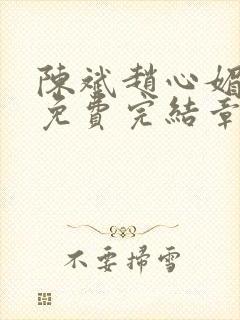 陳斌趙心媚
免費完結章
不要掃雪